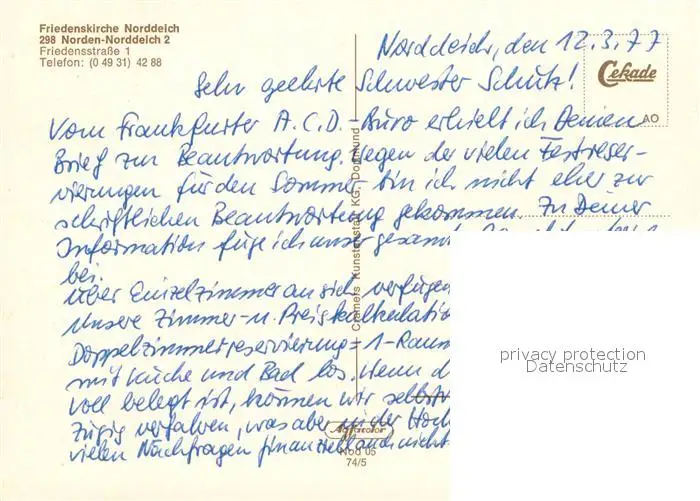 Friedenskirche Norddeich
298 Norden-Norddeich 2
Friedensstraße 1
Telefon: (0 49 31) 42 88
Norddeich, den 12.3.77
Cekade
AO
Sehr geehrte Schwester Schütz!
Vom Frankfurter A.C.D.-Büro erhielt ich Deinen
Brief zur Beantwortung. Wegen der vielen Festreser-
vierungen für den Sommer bin ich nicht eher zur
schriftlichen Beantwortung gekommen. Zu Deiner
Information füge ich unser gesamt
bei.
Über Einzelzimmer an sich verfügen
Unsere Zimmer- u. Preiskalkulatio
Doppelzimmerreservierung = 1-Raum
mit Küche und Bad los. Wenn d
voll belegt ist, können wir selbstv
zügig verfahren, was aber in der Hoch
vielen Nachfragen finanziell auch nicht
Cramers Kunstanstalt KG, Dortmund
Agfacolor
Nod 05
74/5
privacy protection
Datenschutz